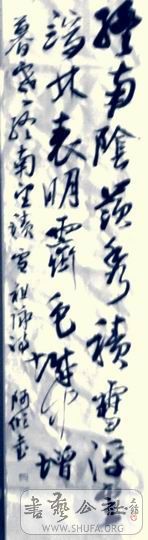 终南陰嶺秀積雪浮雲
端林表明霽色城中增
暮寒 終南望積雪祖詠詩 阿修書
書藝公社
WWW.SHUFA.ORG